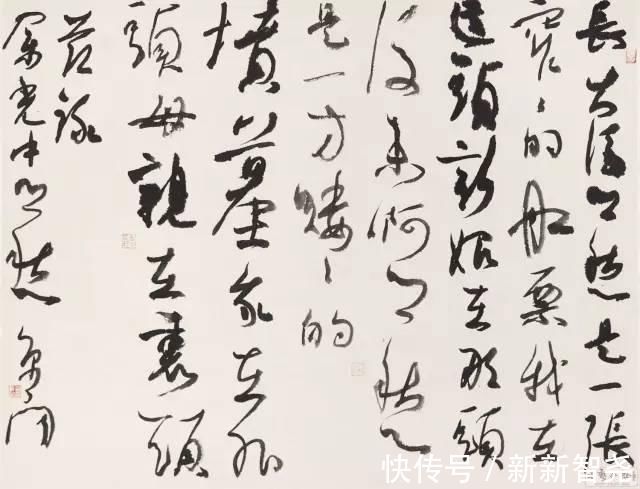 長大後鄉愁是一張
窄々的船票我在
這頭新娘在那頭
後來啊鄉愁
是一方矮々的
墳墓我在外
頭母親在裏頭
錄
余光中鄉愁
快传号/新新智尧